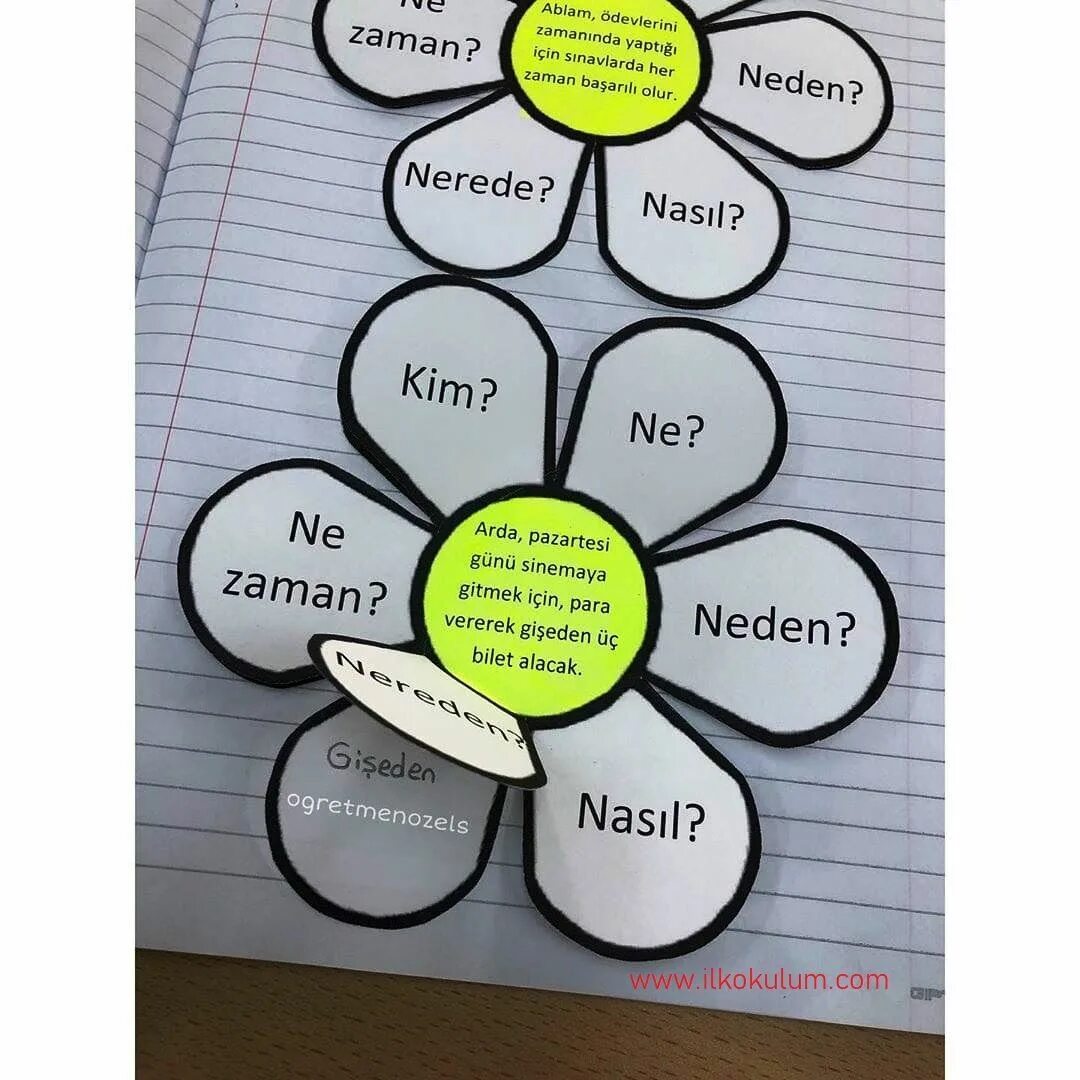 Ne
zaman?
Ablam, ödevlerini
zamanında yaptığı
için sınavlarda her
zaman başarılı olur.
Neden?
Nerede?
Nasıl?
Kim?
Ne?
Ne
zaman?
Arda, pazartesi
günü sinemaya
gitmek için, para
vererek gişeden üç
bilet alacak.
Neden?
Nereden?
Gişeden
ogretmenozels
Nasıl?
www.ilkokulum.com